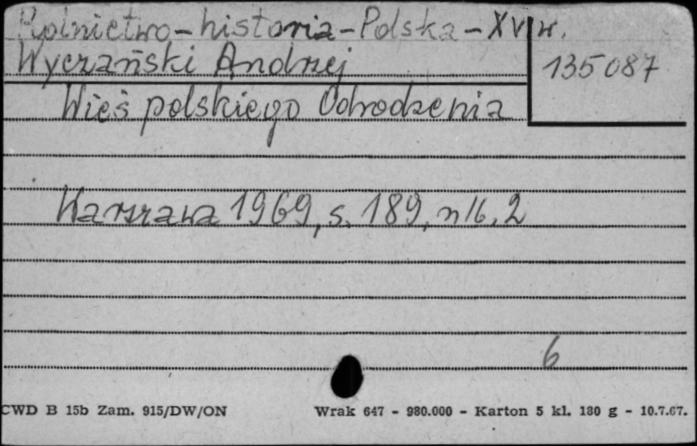 Rolnictwo - historia - Polska - XVI w.
Wyczański Andrzej
135087
Wieś polskiego Odrodzenia
Warszawa 1969, s. 189, nlb. 2
6
CWD B 15b Zam. 915/DW/ON Wrak 647 - 980.000 - Karton 5 kl. 180 g - 10.7.67.